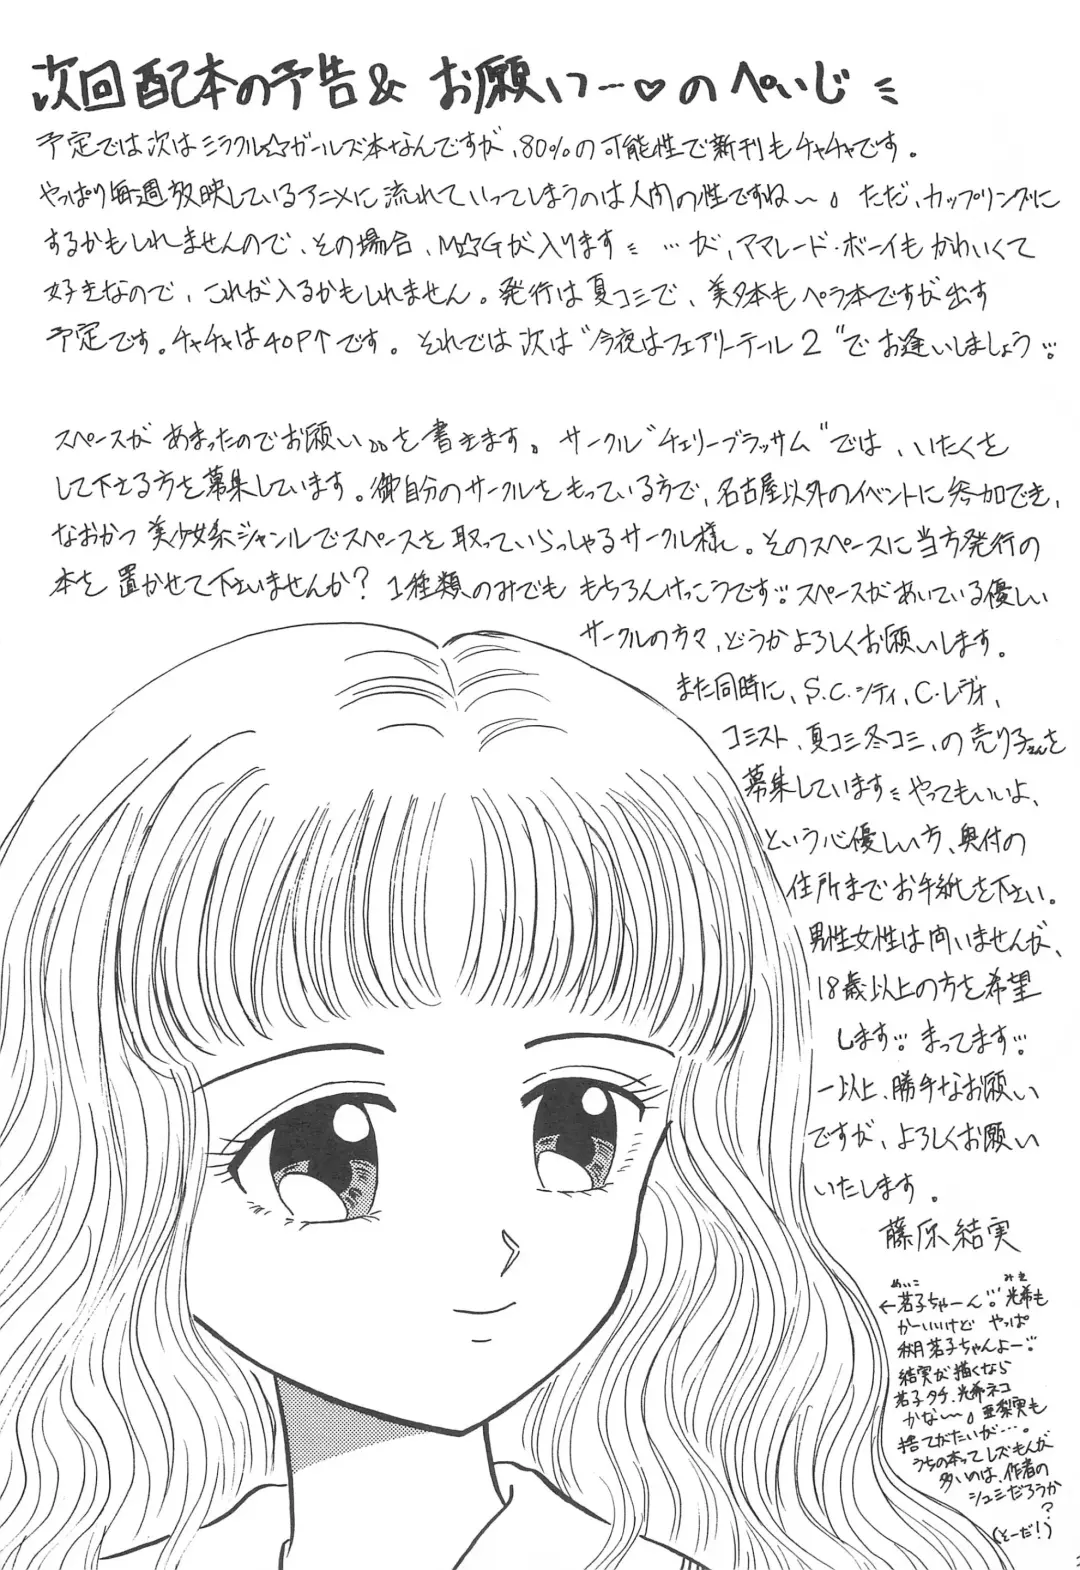 次回配本の予告& お願いっ…♡のぺいじ
予定では次はミラクル☆ガールズ本なんですが、80%の可能性で新刊もチャチャです。
やっぱり毎週放映しているアニメに流れていってしまうのは人間の性ですね〜。ただ、カップリングに
するかもしれませんので、その場合、M☆Gが入ります …が、ママレード・ボーイもかわいくて
好きなので、これが入るかもしれません。発行は夏コミで、美夕本もペラ本ですが出す
予定です。チャチャは40P↑です。それでは次は"今夜はフェアリーテール2"でお逢いしましょう
スペースがあまったのでお願い。。を書きます。サークル"チェリーブラッサム"では、いたくを
して下さる方を募集しています。御自分のサークルをもっている方で、名古屋以外のイベントに参加でき、
なおかつ美少女系ジャンルでスペースを取っていらっしゃるサークル様。そのスペースに当方発行の
本を置かせて下さいませんか?1種類のみでももちろんけっこうです スペースがあいている優しい
サークルの方々、どうかよろしくお願いします。
また同時に、S.C.シティ、C・レヴォ、
コミスト、夏コミ冬コミ、の売り子さんを
募集しています やってもいいよ、
という心優しい方、奥付の
住所までお手紙を下さい。
男性女性は問いませんが、
18歳以上の方を希望
します まってます
一以上、勝手なお願い
ですが、よろしくお願い
いたします。
藤原結実
めいこ みき
←茗子ちゃーん 光希も
かーいいけど やっぱ
秋月茗子ちゃんよー
結実が描くなら
茗子タチ、光希ネコ
かな〜。亜梨実も
捨てがたいが…。
うちの本ってレズもんが
多いのは、作者の
シュミだろうか
?
(そーだ!)